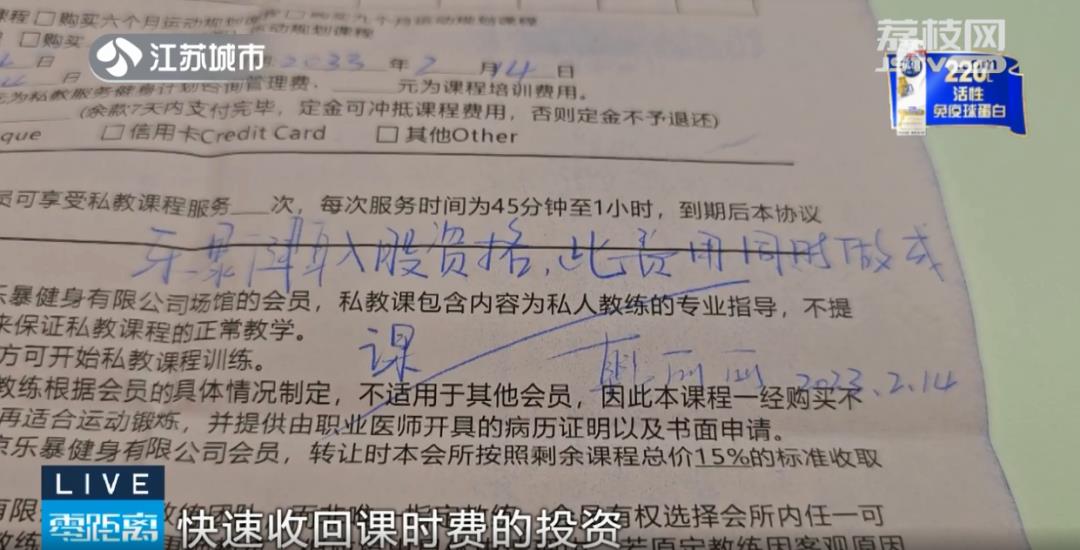 课程 □购买六个月运动规划课程 □购买九个月运动规划课程
□购买 运动规划课程
江苏城市
荔枝网
220
活性
免疫球蛋白
日 2023 年 2 月 14 日
元为私教服务健身计划咨询管理费、 元为课程培训费用。
(余款7天内支付完毕，定金可冲抵课程费用，否则定金不予退还)
que □信用卡Credit Card □其他Other
员可享受私教课程服务 次，每次服务时间为45分钟至1小时，到期后本协议
乐暴 入股资格，此费用同时做成
乐暴健身有限公司场馆的会员，私教课包含内容为私人教练的专业指导，不提
来保证私教课程的正常教学。
课
方可开始私教课程训练。
2023.2.14
教练根据会员的具体情况制定，不适用于其他会员，因此本课程一经购买不
再适合运动锻炼，并提供由职业医师开具的病历证明以及书面申请。
京乐暴健身有限公司会员，转让时本会所按照剩余课程总价15%的标准收取
LIVE
零距离
有权选择会所内任一可
快速收回课时费的投资
若原定教练因客观原因